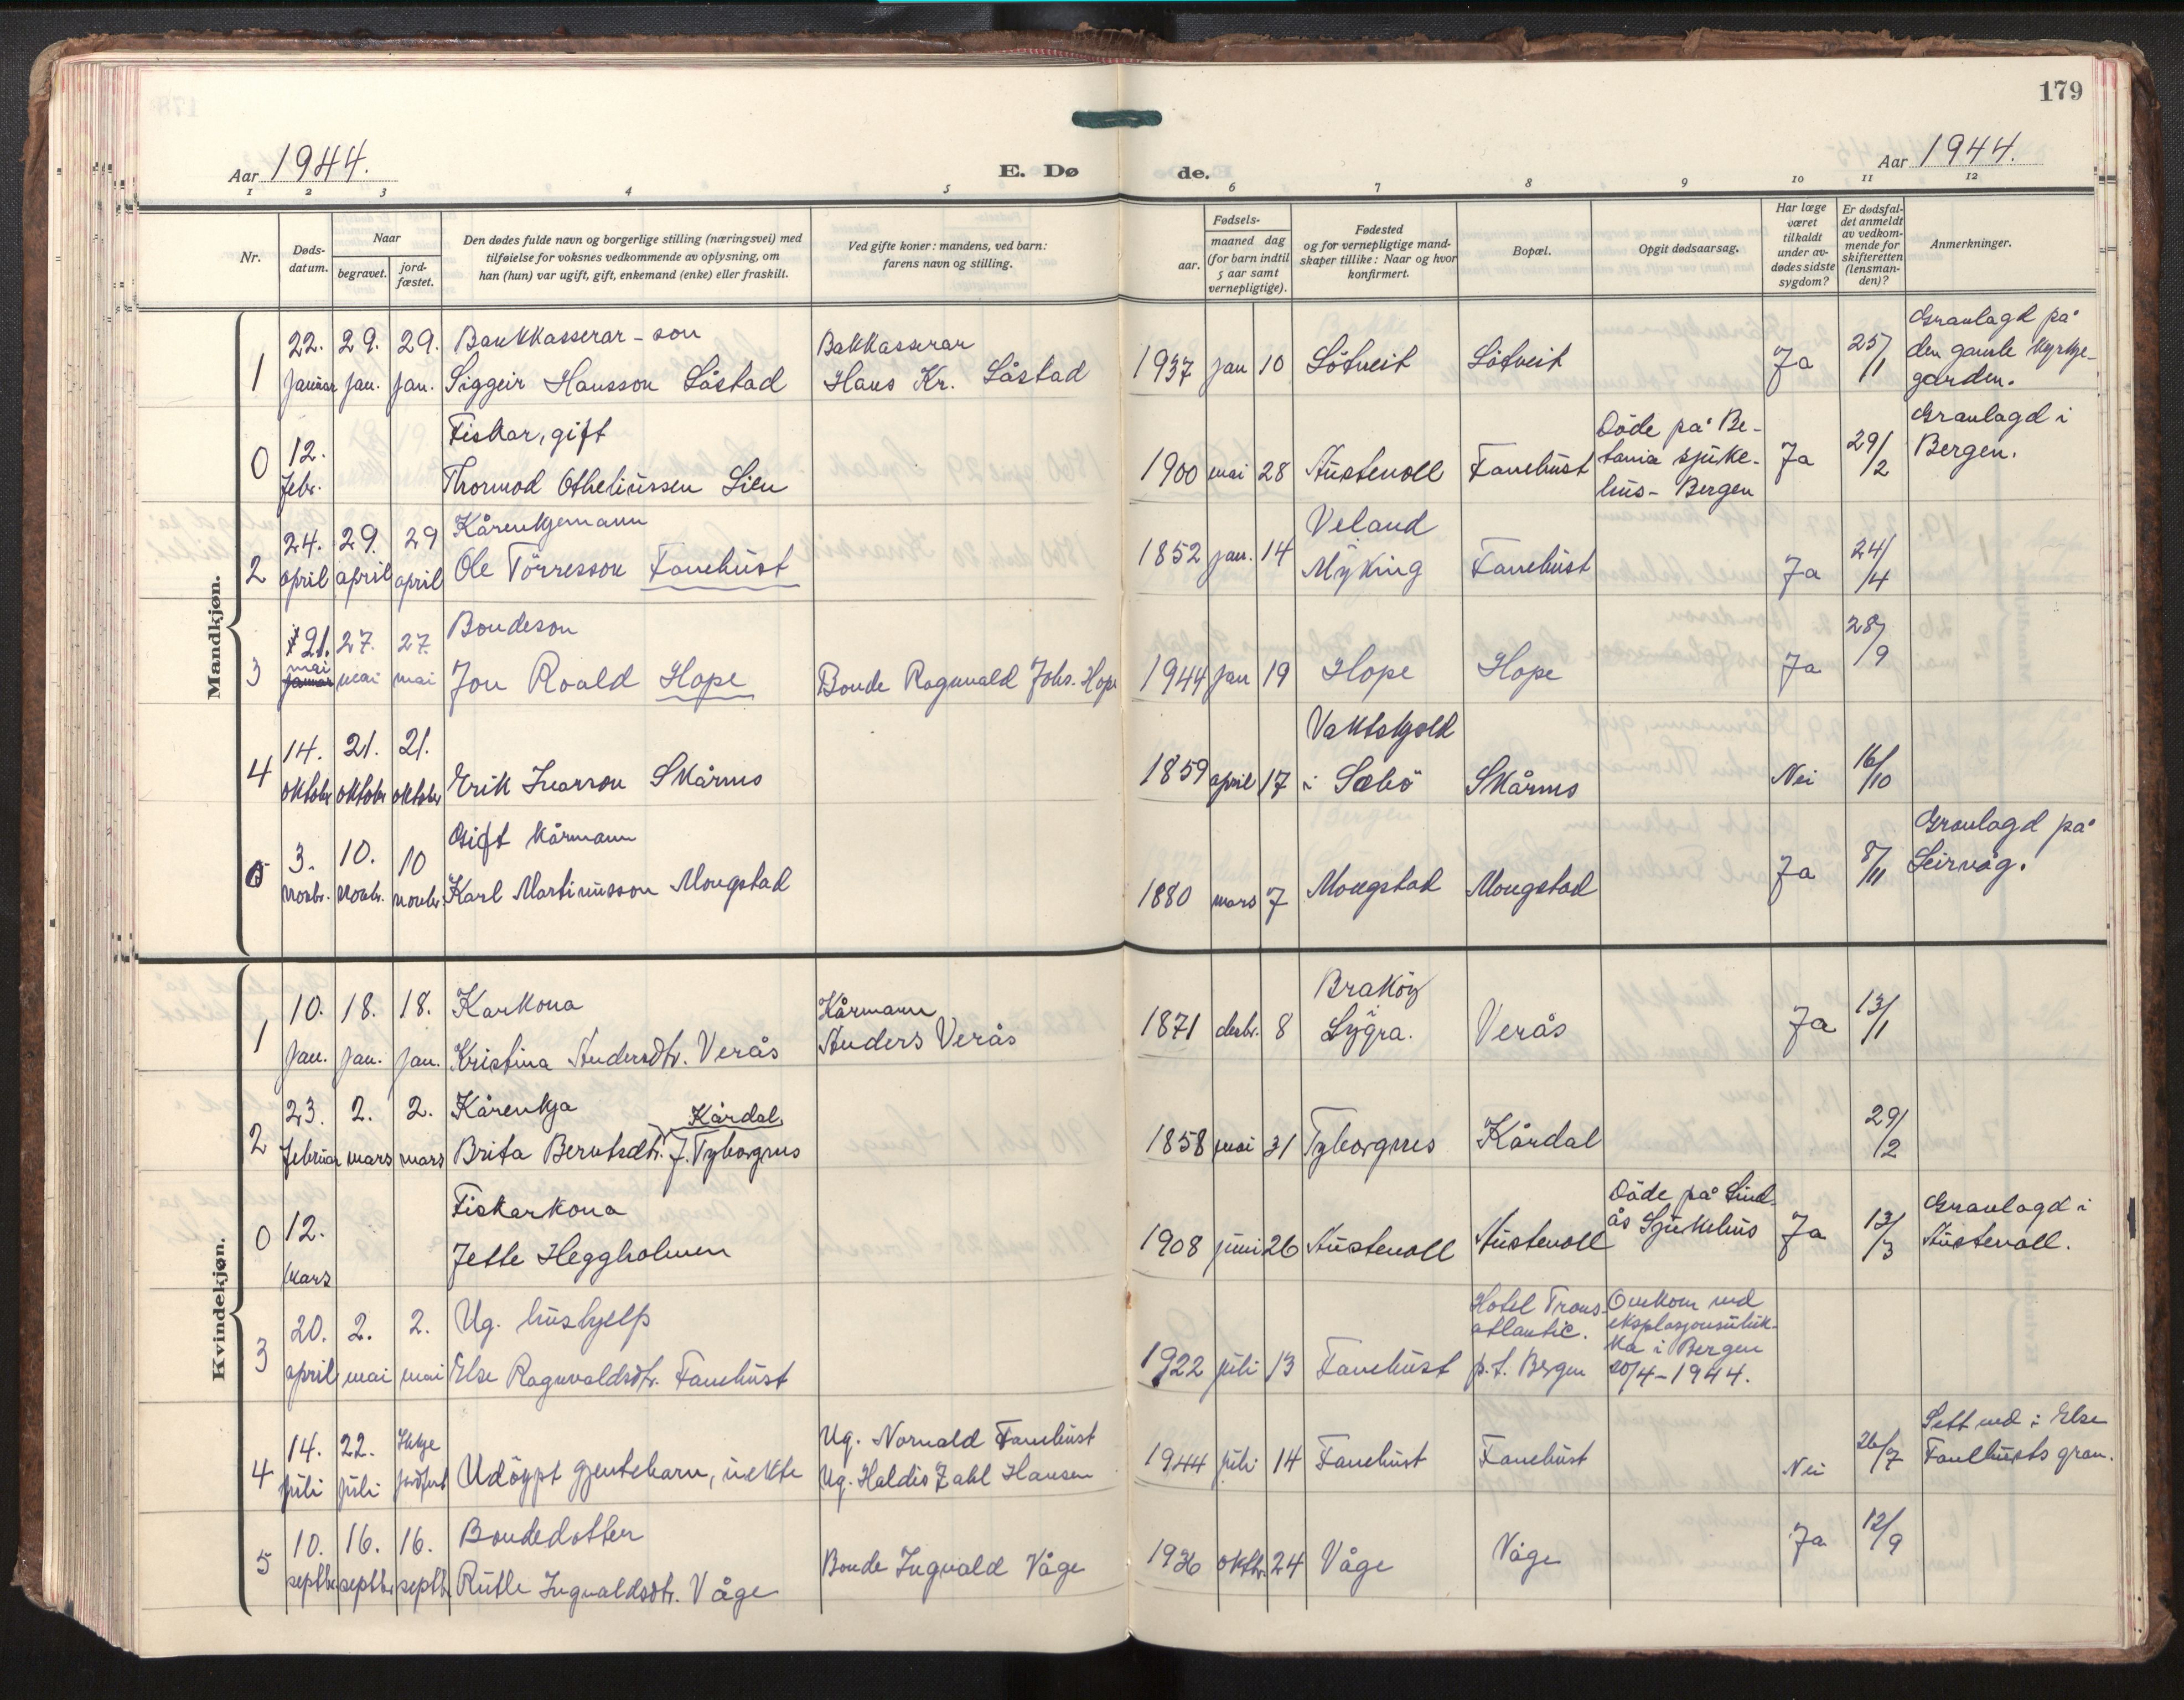 179
Aar 1944.
E. Dø
de.
Aar 1944.
1 2 3 4 5 6 7 8 9 10 11 12
Nr.
Døds-
datum.
Naar
begravet.
jord-
fæstet.
Den dødes fulde navn og borgerlige stilling (næringsvei) med
tilføielse for voksnes vedkommende av oplysning, om
han (hun) var ugift, gift, enkemand (enke) eller fraskilt.
Ved gifte koner: mandens, ved barn:
farens navn og stilling.
Fødsels-
aar.
maaned dag
(for barn indtil
5 aar samt
vernepligtige).
Fødested
og for vernepligtige mand-
skaper tillike: Naar og hvor
konfirmert.
Bopæl.
Opgit dødsaarsag.
Har læge
været
tilkaldt
under av-
dødes sidste
sygdom?
Er dødsfal-
det anmeldt
av vedkom-
mende for
skifteretten
(lensman-
den)?
Anmerkninger.
Mandkjøn.
1
22.
januar
29.
jan.
29.
jan.
Bankkasserar-son
Siggeir Hansson Låstad
Bakkasserar
Hans Kr. Låstad
1937 jan 10
Lötveit
Lötveit
Ja
25/1
Gravlagd på
den gamle kyrkje-
garden.
0
12.
febr.
Fiskar, gift
Thormod Otheliussen Lien
1900 mai 28
Austevoll
Fanehust
Döde på Be-
tania sjuke-
hus - Bergen
Ja
29/2
Gravlagd i
Bergen.
2
24.
april
29.
april
29
april
Kårenkjemann
Ole Törresson Fanehust
1852 jan. 14
Veland
Myking
Fanehust
Ja
24/4
3
21.
mai
januar
27.
mai
27.
mai
Bondeson
Jon Roald Hope
Bonde Ragnvald Johs. Hope
1944 jan 19
Hope
Hope
Ja
28/9
4
14.
oktobr
21.
oktobr
21.
oktobr
Erik Ivarson Skårnes
1859 april 17
Vaktskjold
i Sæbö
Skårnes
Nei
16/10
0
3.
novbr.
10.
novbr.
10
novbr.
Gift kårmann
Karl Martinusson Mongstad
1880 mars 7
Mongstad
Mongstad
Ja
8/11
Gravlagd på
Leirvåg.
Kvindekjøn.
1
10.
Jan.
18.
jan.
18.
jan.
Karkona
Kristina Andersdtr. Verås
Kårmann
Anders Verås
1871 desbr. 8
Braköy
i
Lygra.
Verås
Ja
13/1
2
23.
februar
2.
mars
2.
mars
Kårenkja
Kårdal
Brita Berntsdtr. f. Tyborgnes
1858 mai 31
Tyborgnes
Kårdal
29/2
0
12.
mars
Fiskarkona
Jette Heggholmen
1908 juni 26
Austevoll
Austevoll
Döde på Lind-
ås Sjukehus
Ja
13/3
Gravlagd i
Austevoll.
3
20.
april
2.
mai
2.
mai
Ug. hushjelp
Else Ragnvaldsdtr. Fanehust
1922 juli 13
Fanehust
Hotel Trans-
atlantic.
p.t. Bergen
Omkom ved
eksplosjonsuluk-
ka i Bergen
20/4-1944.
4
14.
juli
22.
juli
Ikkje
jordfest
Udöypt gjentebarn, uekte
Ug. Norvald Fanehust
Ug. Haldis Zahl Hansen
1944 juli 14
Fanehust
Fanehust
Nei
26/7
Sett ned i Else
Fanehusts grav.
5
10.
septbr
16.
septbr
16.
septbr.
Bondedotter
Ruth Ingvaldsdtr. Våge
Bonde Ingvald Våge
1936 oktbr. 24
Våge
Våge
Ja
12/9